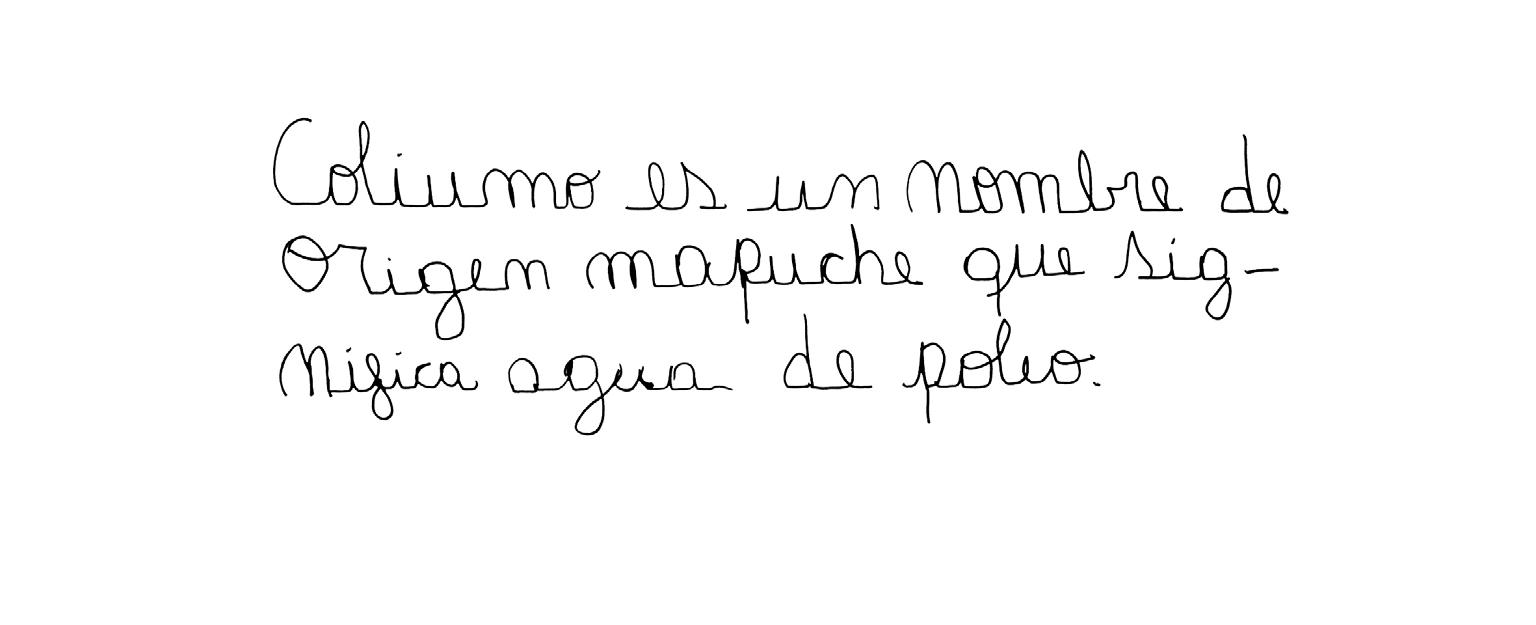 Coliumo es un nombre de
origen mapuche que sig-
nifica agua de poleo.